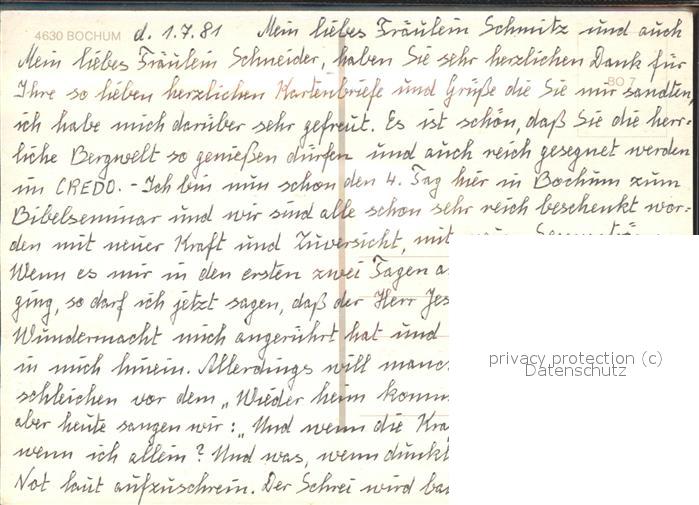 4630 BOCHUM d. 1.7.81 Mein liebes Fräulein Schmitz und auch
Mein liebes Fräulein Schneider, haben Sie sehr herzlichen Dank für
BO 7
Ihre so lieben herzlichen Kartenbriefe und Grüße die Sie mir sandten,
ich habe mich darüber sehr gefreut. Es ist schön, daß Sie die herr=
liche Bergwelt so genießen dürfen und auch reich gesegnet werden
im CREDO. - Ich bin nun schon den 4. Tag hier in Bochum zum
Bibelseminar und wir sind alle schon sehr reich beschenkt wor=
den mit neuer Kraft und Zuversicht, mit
Wenn es mir in den ersten zwei Tagen a
ging, so darf ich jetzt sagen, daß der Herr Jes
Wundermacht mich angerührt hat und
in mich hinein. Allerdings will manc
schleichen vor dem „Wieder heim komm
aber heute sangen wir: „Und wenn die Kra
wenn ich allein? Und was, wenn dunkl
Not laut aufzuschrein. Der Schrei wird
privacy protection (c)
Datenschutz